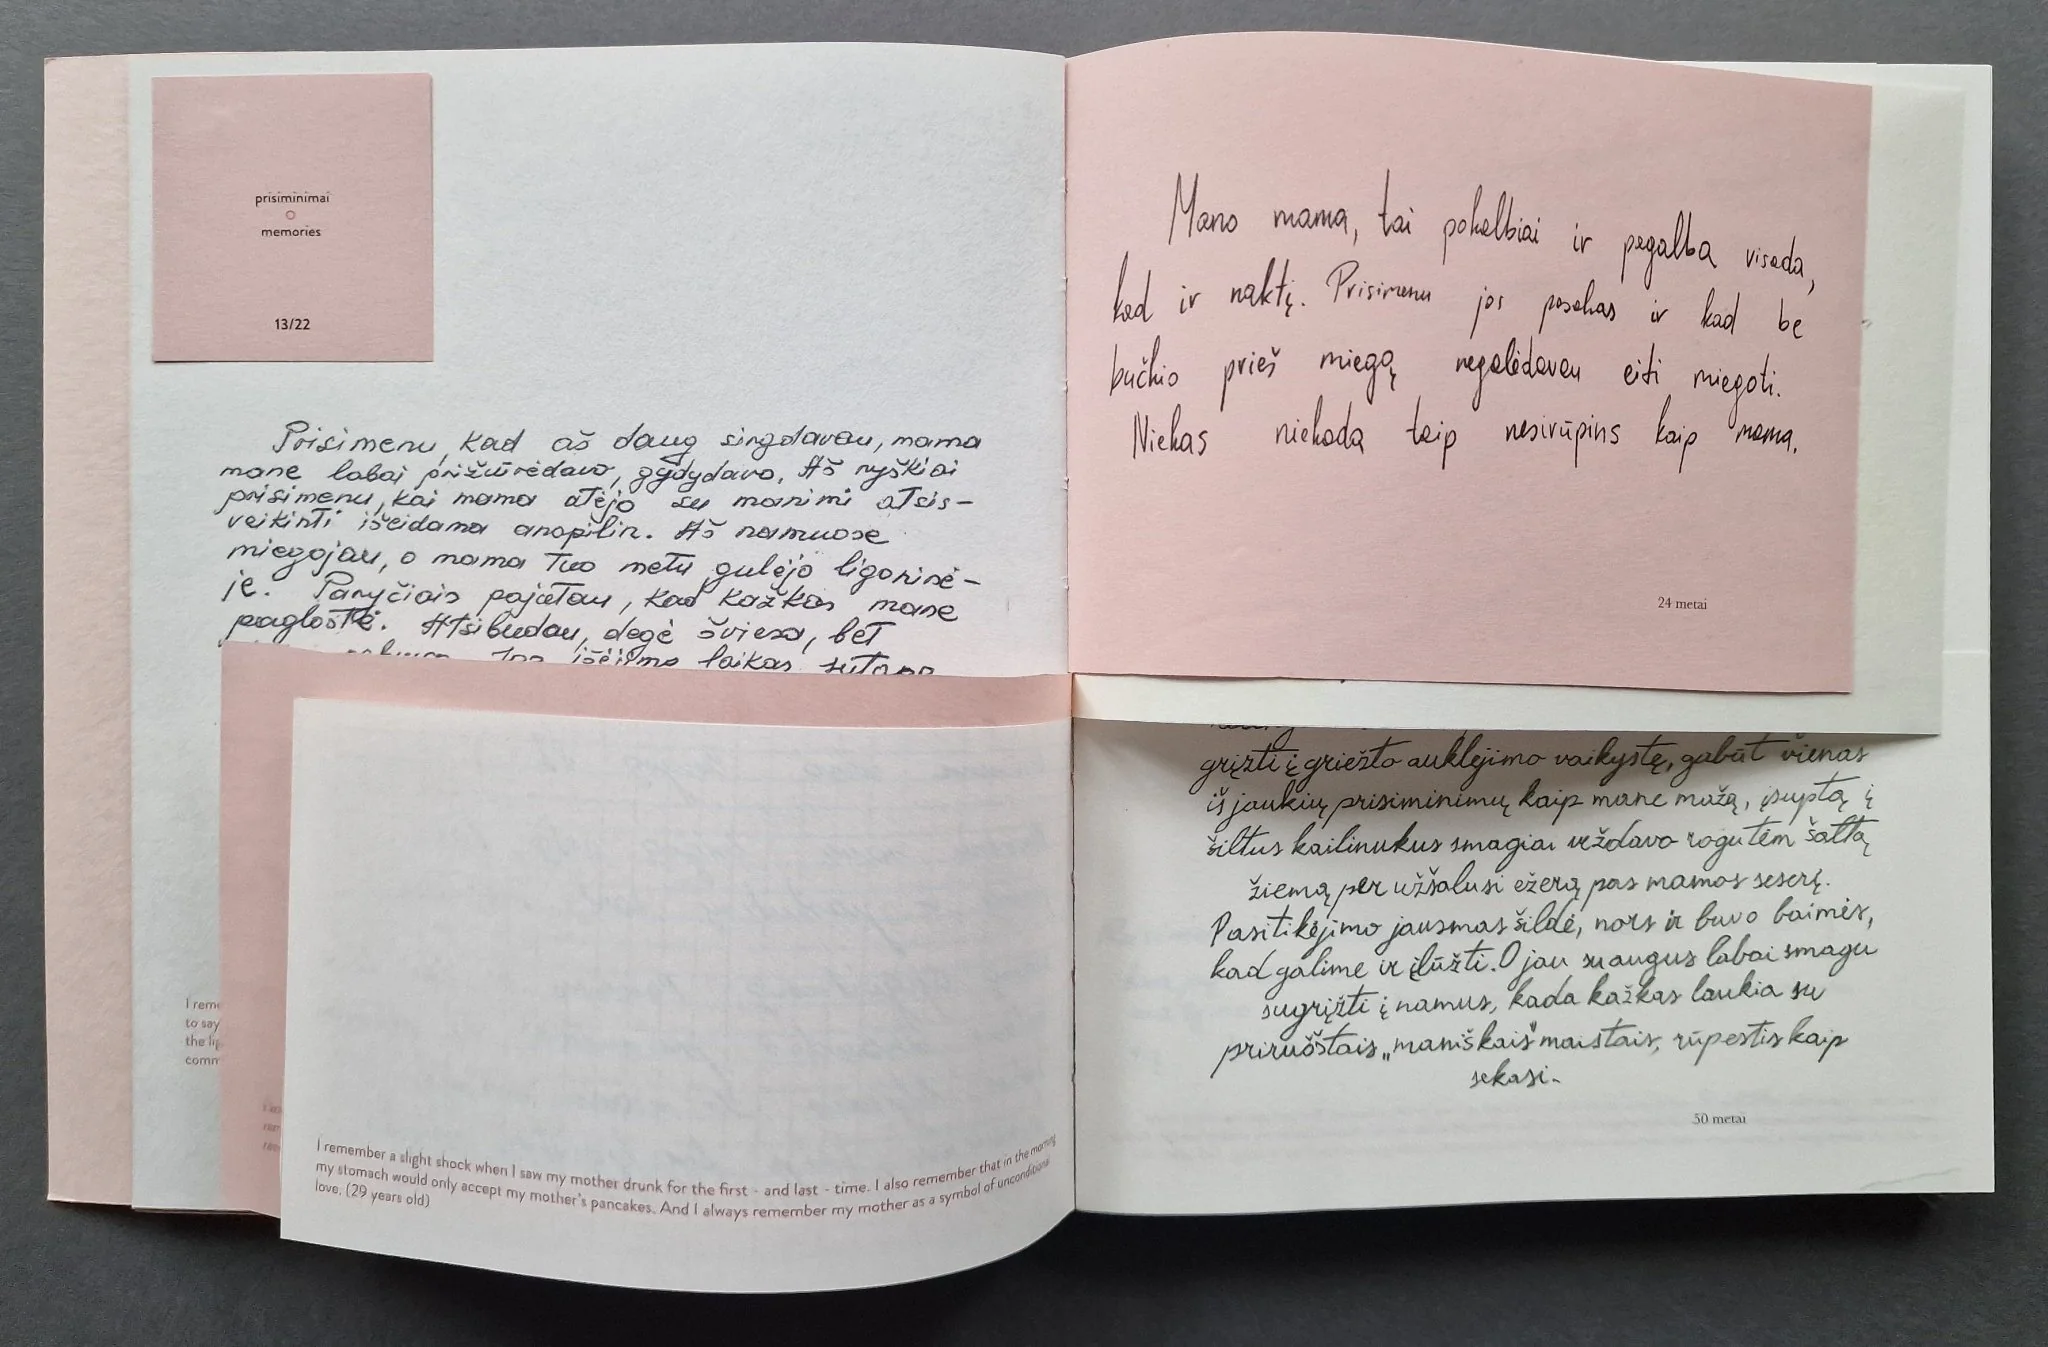 prisiminimai
memories
13/22
Prisimenu, kad aš daug sirgdavau, mama
mane labai prižiūrėdavo, gydydavo. Aš ryškiai
prisimenu, kai mama atėjo su manimi atsis-
veikinti išeidama anapilin. Aš namuose
miegojau, o mama tuo metu gulėjo ligoninė-
je. Paryčiais pajutau, kad kažkas mane
paglostė. Atsibudau, degė šviesa, bet
Jos išėjimo laikas sutapo
I reme
to say
the lig
comm
I remember a slight shock when I saw my mother drunk for the first - and last - time. I also remember that in the morning
my stomach would only accept my mother's pancakes. And I always remember my mother as a symbol of unconditional
love. (29 years old)
Mano mama, tai pokalbiai ir pagalba visada,
kad ir naktį. Prisimenu jos pasakas ir kad be
bučkio prieš miegą negalėdavau eiti miegoti.
Niekas niekada taip nesirūpins kaip mama.
24 metai
grįžti į griežto auklėjimo vaikystę, gabūt vienas
iš jaukių prisiminimų kaip mane mažą, įsuptą į
šiltus kailinukus smagiai veždavo rogutėm šaltą
žiemą per užšalusi ežerą pas mamos seserį.
Pasitikėjimo jausmas šildė, nors ir buvo baimės,
kad galime ir įlūžti. O jau suaugus labai smagu
sugrįžti į namus, kada kažkas laukia su
priruoštais „maniškais" maistais, rūpestis kaip
sekasi.
50 metai